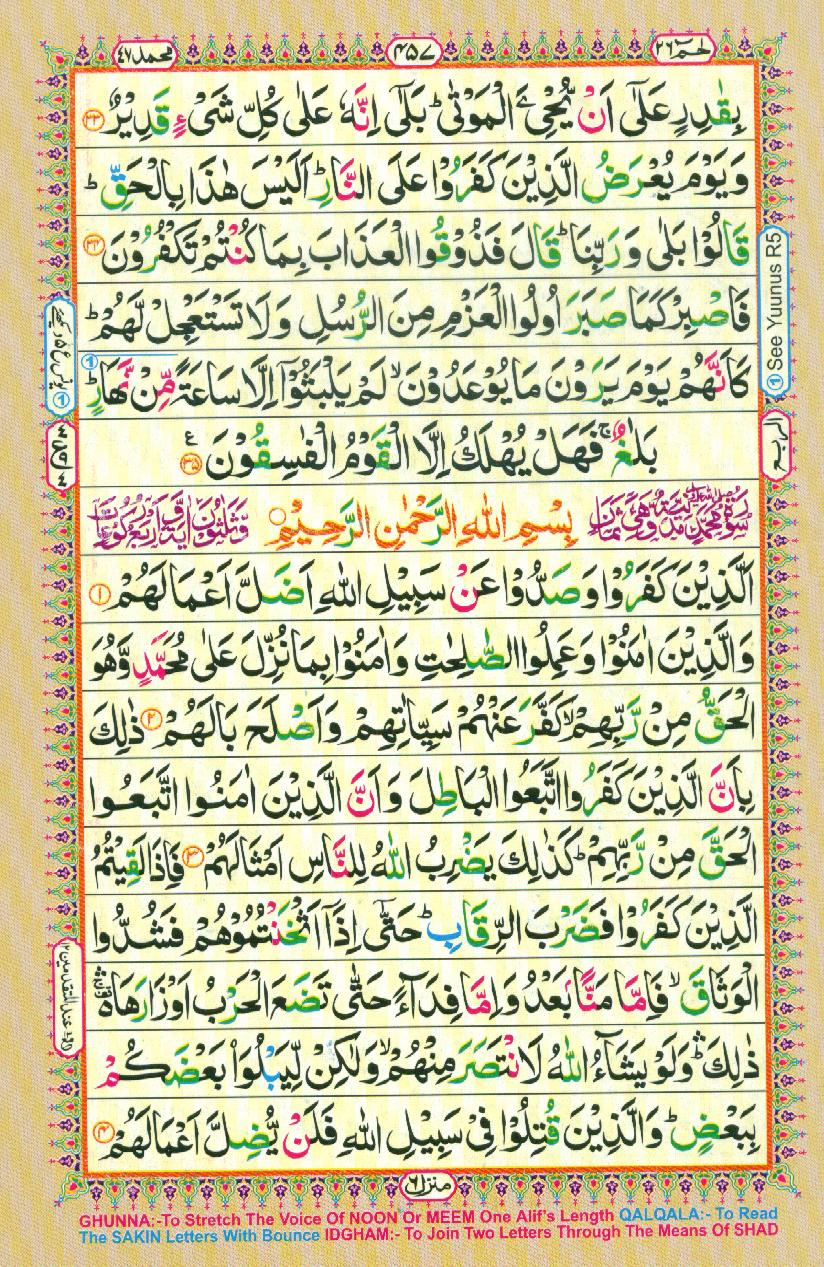 محمد ٤٧
٤٥٧
حٰمٓ ٢٦
بِقٰدِرٍ عَلٰٓى اَنْ يُّحْيِۦَ الْمَوْتٰى ؕ بَلٰٓى اِنَّهٗ عَلٰى كُلِّ شَىْءٍ قَدِيْرٌ ٣٣
وَيَوْمَ يُعْرَضُ الَّذِيْنَ كَفَرُوْا عَلَى النَّارِ ؕ اَلَيْسَ هٰذَا بِالْحَقِّ ؕ
قَالُوْا بَلٰى وَرَبِّنَا ؕ قَالَ فَذُوْقُوا الْعَذَابَ بِمَا كُنْتُمْ تَكْفُرُوْنَ ٣٤
فَاصْبِرْ كَمَا صَبَرَ اُولُوا الْعَزْمِ مِنَ الرُّسُلِ وَلَا تَسْتَعْجِلْ لَّهُمْ ؕ
كَاَنَّهُمْ يَوْمَ يَرَوْنَ مَا يُوْعَدُوْنَ ۙ لَمْ يَلْبَثُوْۤا اِلَّا سَاعَةً مِّنْ نَّهَارٍ ؕ
بَلٰغٌ ۚ فَهَلْ يُهْلَكُ اِلَّا الْقَوْمُ الْفٰسِقُوْنَ ٣٥ ع
① See Yuunus R5
الربع
بِسْمِ اللّٰهِ الرَّحْمٰنِ الرَّحِيْمِ
اَلَّذِيْنَ كَفَرُوْا وَصَدُّوْا عَنْ سَبِيْلِ اللّٰهِ اَضَلَّ اَعْمَالَهُمْ ١
وَالَّذِيْنَ اٰمَنُوْا وَعَمِلُوا الصّٰلِحٰتِ وَاٰمَنُوْا بِمَا نُزِّلَ عَلٰى مُحَمَّدٍ وَّهُوَ
الْحَقُّ مِنْ رَّبِّهِمْ ۙ كَفَّرَ عَنْهُمْ سَيِّاٰتِهِمْ وَاَصْلَحَ بَالَهُمْ ٢ ذٰلِكَ
بِاَنَّ الَّذِيْنَ كَفَرُوا اتَّبَعُوا الْبَاطِلَ وَاَنَّ الَّذِيْنَ اٰمَنُوا اتَّبَعُوا
الْحَقَّ مِنْ رَّبِّهِمْ ؕ كَذٰلِكَ يَضْرِبُ اللّٰهُ لِلنَّاسِ اَمْثَالَهُمْ ٣ فَاِذَا لَقِيْتُمُ
الَّذِيْنَ كَفَرُوْا فَضَرْبَ الرِّقَابِ ؕ حَتّٰٓى اِذَاۤ اَثْخَنْتُمُوْهُمْ فَشُدُّوا
الْوَثَاقَ ۙ فَاِمَّا مَنًّۢا بَعْدُ وَاِمَّا فِدَآءً حَتّٰى تَضَعَ الْحَرْبُ اَوْزَارَهَا
ذٰلِكَ ؕ وَلَوْ يَشَآءُ اللّٰهُ لَانْتَصَرَ مِنْهُمْ ۙ وَلٰكِنْ لِّيَبْلُوَا۟ بَعْضَكُمْ
بِبَعْضٍ ؕ وَالَّذِيْنَ قُتِلُوْا فِىْ سَبِيْلِ اللّٰهِ فَلَنْ يُّضِلَّ اَعْمَالَهُمْ ٤
منزل ٦
GHUNNA:-To Stretch The Voice Of NOON Or MEEM One Alif's Length QALQALA:- To Read
The SAKIN Letters With Bounce IDGHAM:- To Join Two Letters Through The Means Of SHAD